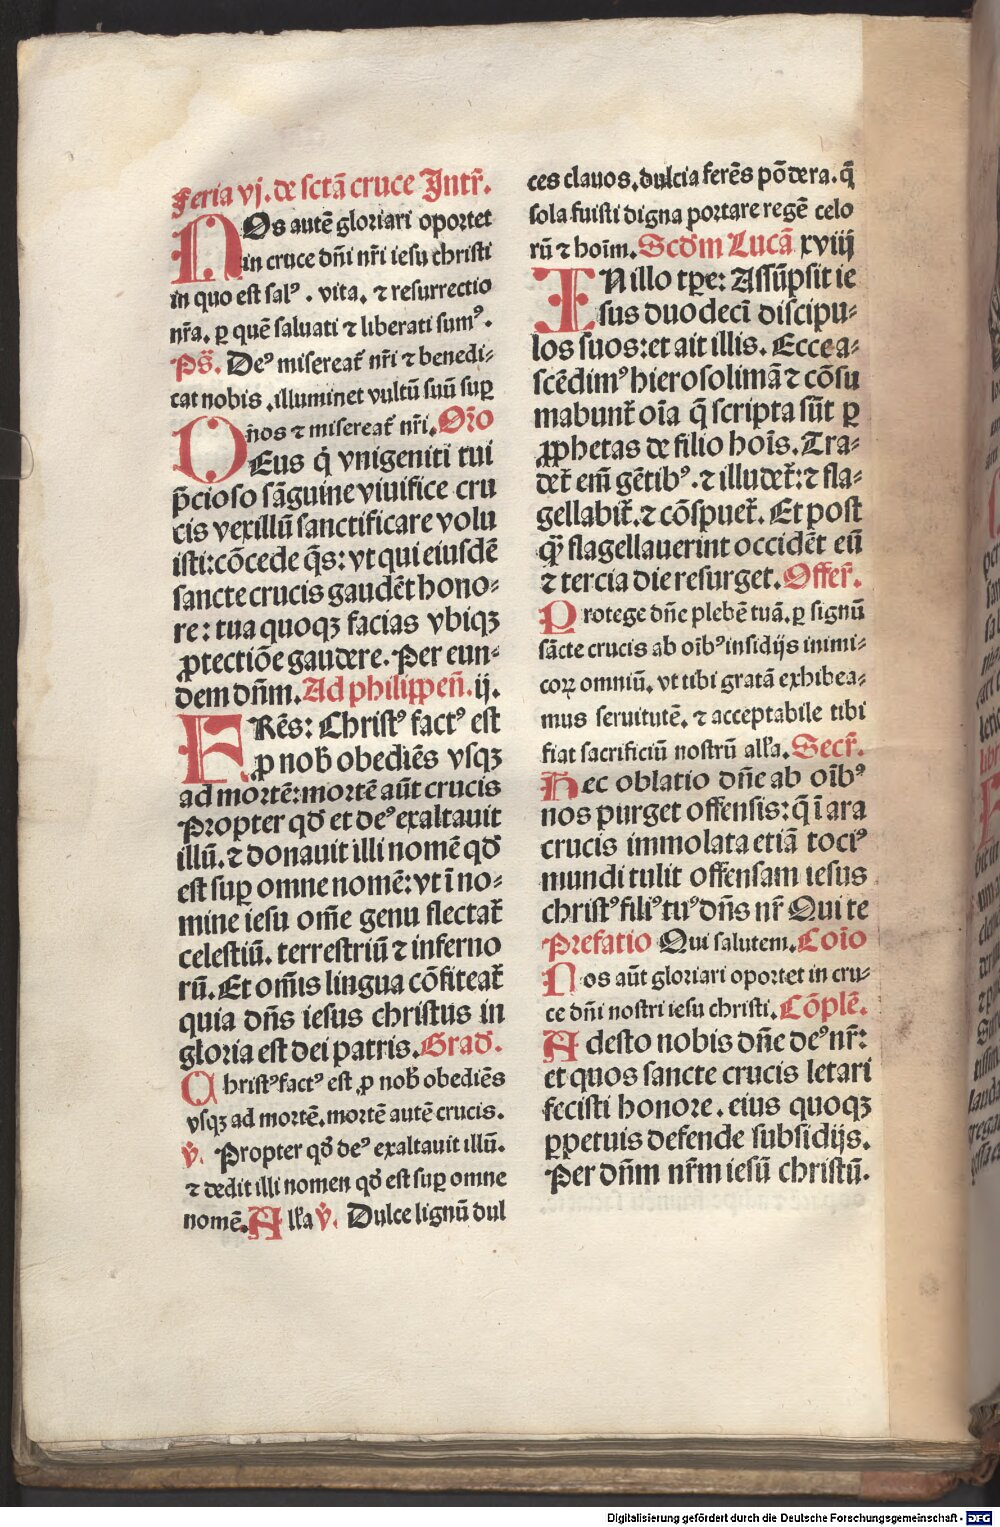 Feria vj. de sctā cruce Intr̄.
NOs autē gloriari oportet
in cruce dn̄i nr̄i iesu christi
in quo est salꝰ . vita. ⁊ resurrectio
nr̄a. ꝑ quē saluati ⁊ liberati sumꝰ.
Ps̄. Deꝰ misereat̄ nr̄i ⁊ benedi⸗
cat nobis .illuminet vultū suū suꝑ
nos ⁊ misereat̄ nr̄i. Or̄o
DEus q̇ vnigeniti tui
p̄cioso sāguine viuifice cru
cis vexillū sanctificare volu
isti:cōcede q̄s: vt qui eiusdē
sancte crucis gaudēt hono⸗
re: tua quoqꝫ facias vbiqꝫ
ꝓtectiōe gaudere. Per eun⸗
dem dn̄m. Ad philippen̄. ij.
FRēs: Christꝰ factꝰ est
ꝓ nob̄ obediēs vsqꝫ
ad mortē: mortē aūt crucis
Propter qd̄ et deꝰ exaltauit
illū. ⁊ donauit illi nomē qd̄
est suꝑ omne nomē: vt ī no⸗
mine iesu om̄e genu flectat̄
celestiū. terrestriū ⁊ inferno
rū. Et om̄is lingua cōfiteat̄
quia dn̄s iesus christus in
gloria est dei patris. Grad̄.
Christꝰ factꝰ est ꝓ nob̄ obediēs
vsqꝫ ad mortē. mortē autē crucis.
v̄. Propter qd̄ deꝰ exaltauit illū.
⁊ dedit illi nomen qd̄ est suꝑ omne
nomē. All̄a v̄. Dulce lignū dul
ces clauos. dulcia ferēs pōdera. q̄
sola fuisti digna portare regē celo
rū ⁊ hoīm. Scd̄m Lucā xviij
IN illo tꝑe: Assūpsit ie
sus duodecī discipu⸗
los suos: et ait illis. Ecce a⸗
scēdimꝰ hierosolimā ⁊ cōsu
mabunt̄ oīa q̄ scripta sūt ꝑ
ꝓphetas de filio hoīs. Tra⸗
det̄ em̄ gētibꝰ. ⁊ illudet̄: ⁊ fla⸗
gellabit̄. ⁊ cōspuet̄. Et post
qꝫ̄ flagellauerint occidēt eū
⁊ tercia die resurget. Offer̄.
Protege dn̄e plebē tuā. ꝑ signū
sācte crucis ab oībꝰ insidijs inimi⸗
coꝝ omniū. vt tibi gratā exhibea⸗
mus seruitutē. ⁊ acceptabile tibi
fiat sacrificiū nostrū all̄a. Secr̄.
Hec oblatio dn̄e ab oībꝰ
nos purget offensis: q̄ ī ara
crucis immolata etiā tociꝰ
mundi tulit offensam iesus
christꝰ filiꝰ tuꝰ dn̄s nr̄ Qui te
Prefatio Qui salutem. Coīo
Nos aūt gloriari oportet in cru⸗
ce dn̄i nostri iesu christi. Cōplē.
Adesto nobis dn̄e deꝰ nr̄:
et quos sancte crucis letari
fecisti honore. eius quoqꝫ
ꝑpetuis defende subsidijs.
Per dn̄m nr̄m iesū christū.
Digitalisierung gefördert durch die Deutsche Forschungsgemeinschaft - DFG